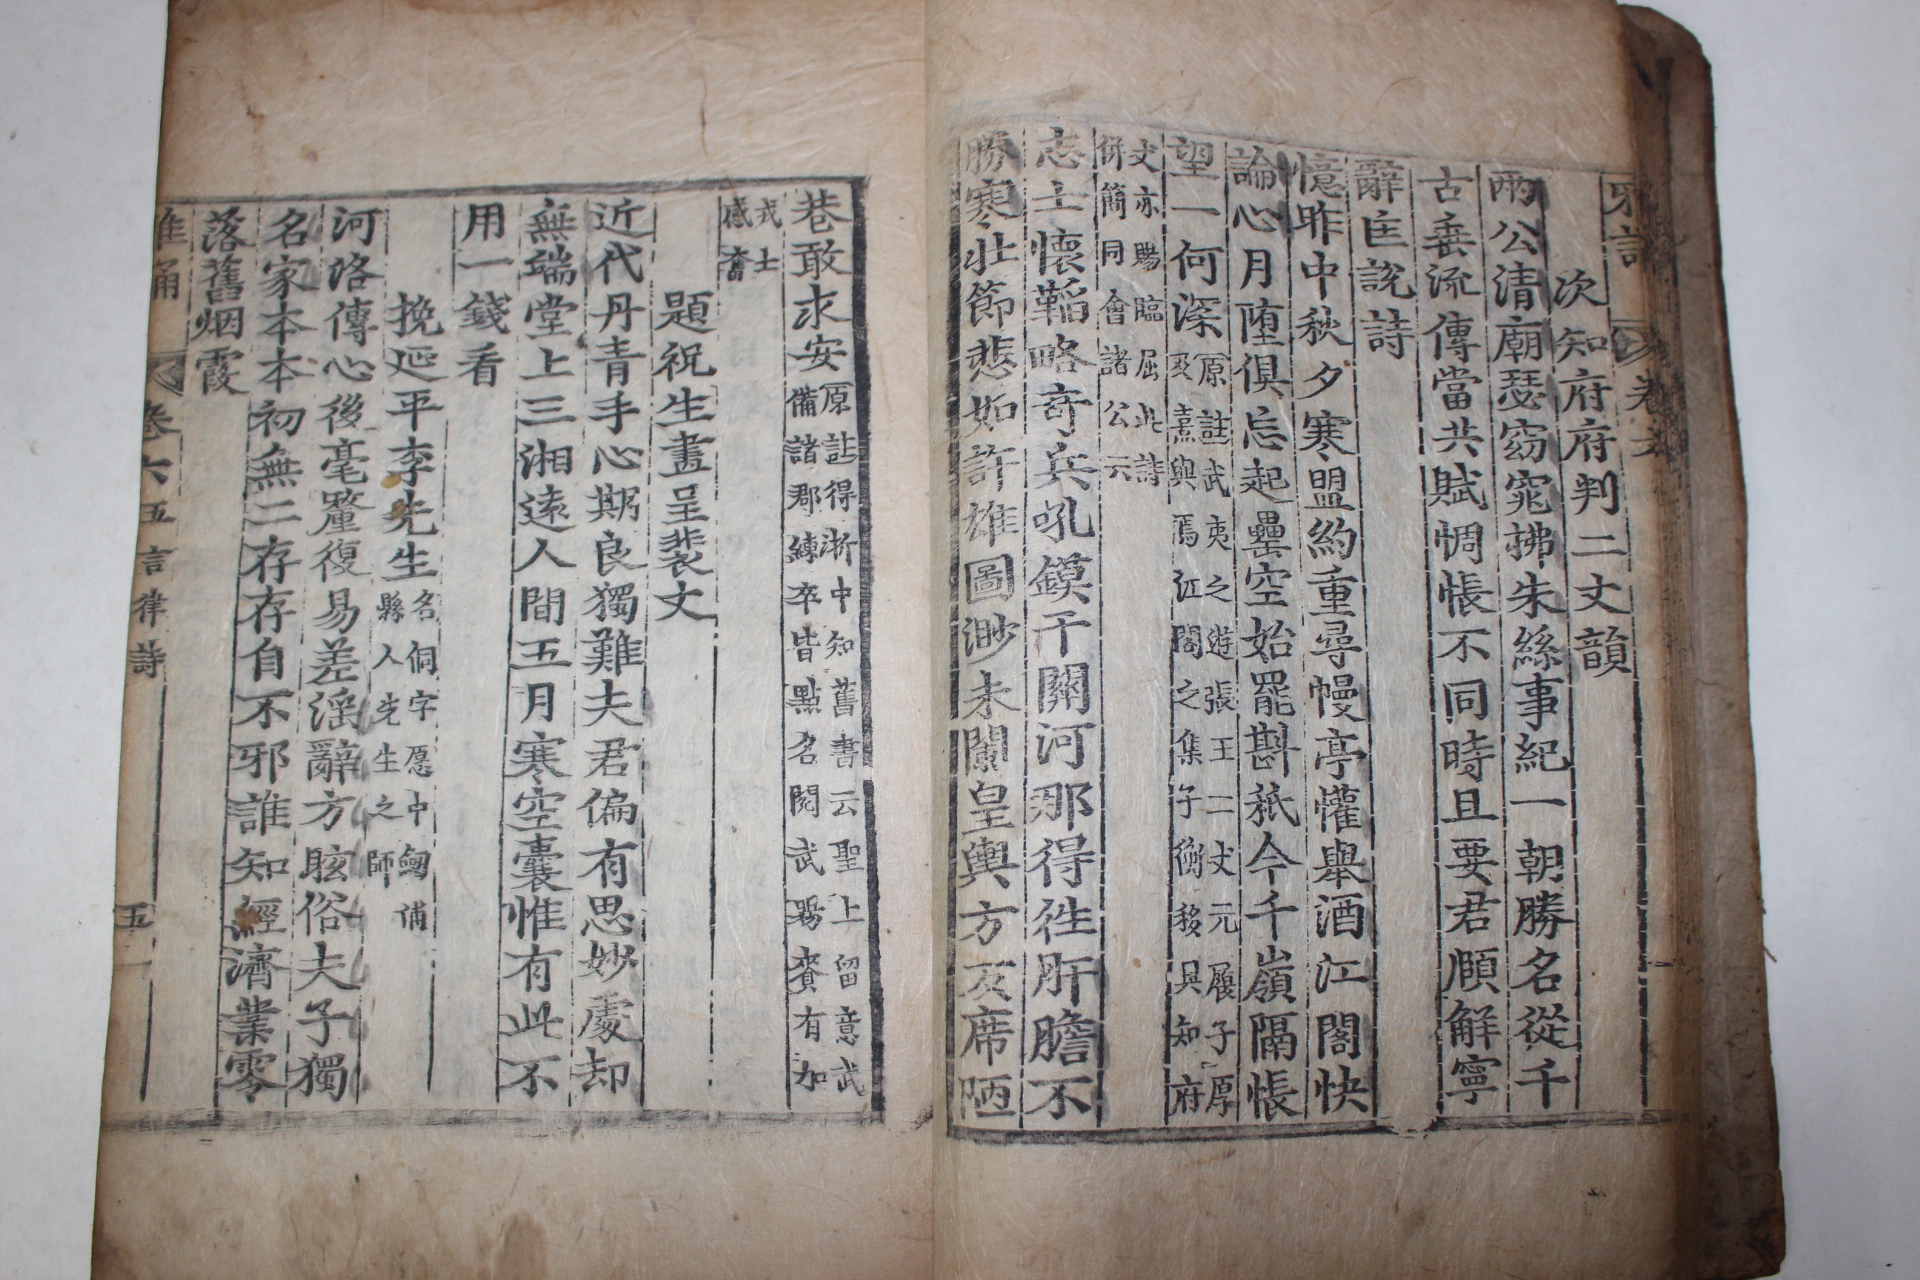 雅誦 卷六
次知府府判二丈韻
兩公清廟瑟窈窕拂朱絲事紀一朝勝名從千
古垂流傳當共賦惆悵不同時且要君頋解寧
辭匡說詩
憶昨中秋夕寒盟約重尋幔亭懽舉酒江閣快
論心月墮俱忘起罍空始罷斟秖今千嶺隔悵
望一何深原註武夷之遊張王二丈元履子厚
及熹與焉江閣之集子衡移具知府
丈亦賜臨屈此詩
併簡同會諸公云
志士懷韜略奇兵吼鏌干關河那得徃肝膽不
勝寒壯節悲如許雄圖渺未闌皇輿方仄席陋
巷敢求安原註得浙中知舊書云聖上留意武
備諸郡練卒皆點名閱武賜賚有加
戎士
感奮
題祝生畫呈裴丈
近代丹青手心期良獨難夫君偏有思妙處却
無端堂上三湘遠人間五月寒空囊惟有此不
用一錢看
挽延平李先生名侗字愿中劒浦
縣人先生之師
河洛傳心後毫釐復易差淫辭方眩俗夫子獨
名家本本初無二存存自不邪誰知經濟業零
落舊烟霞
雅誦 卷六五言律詩 五